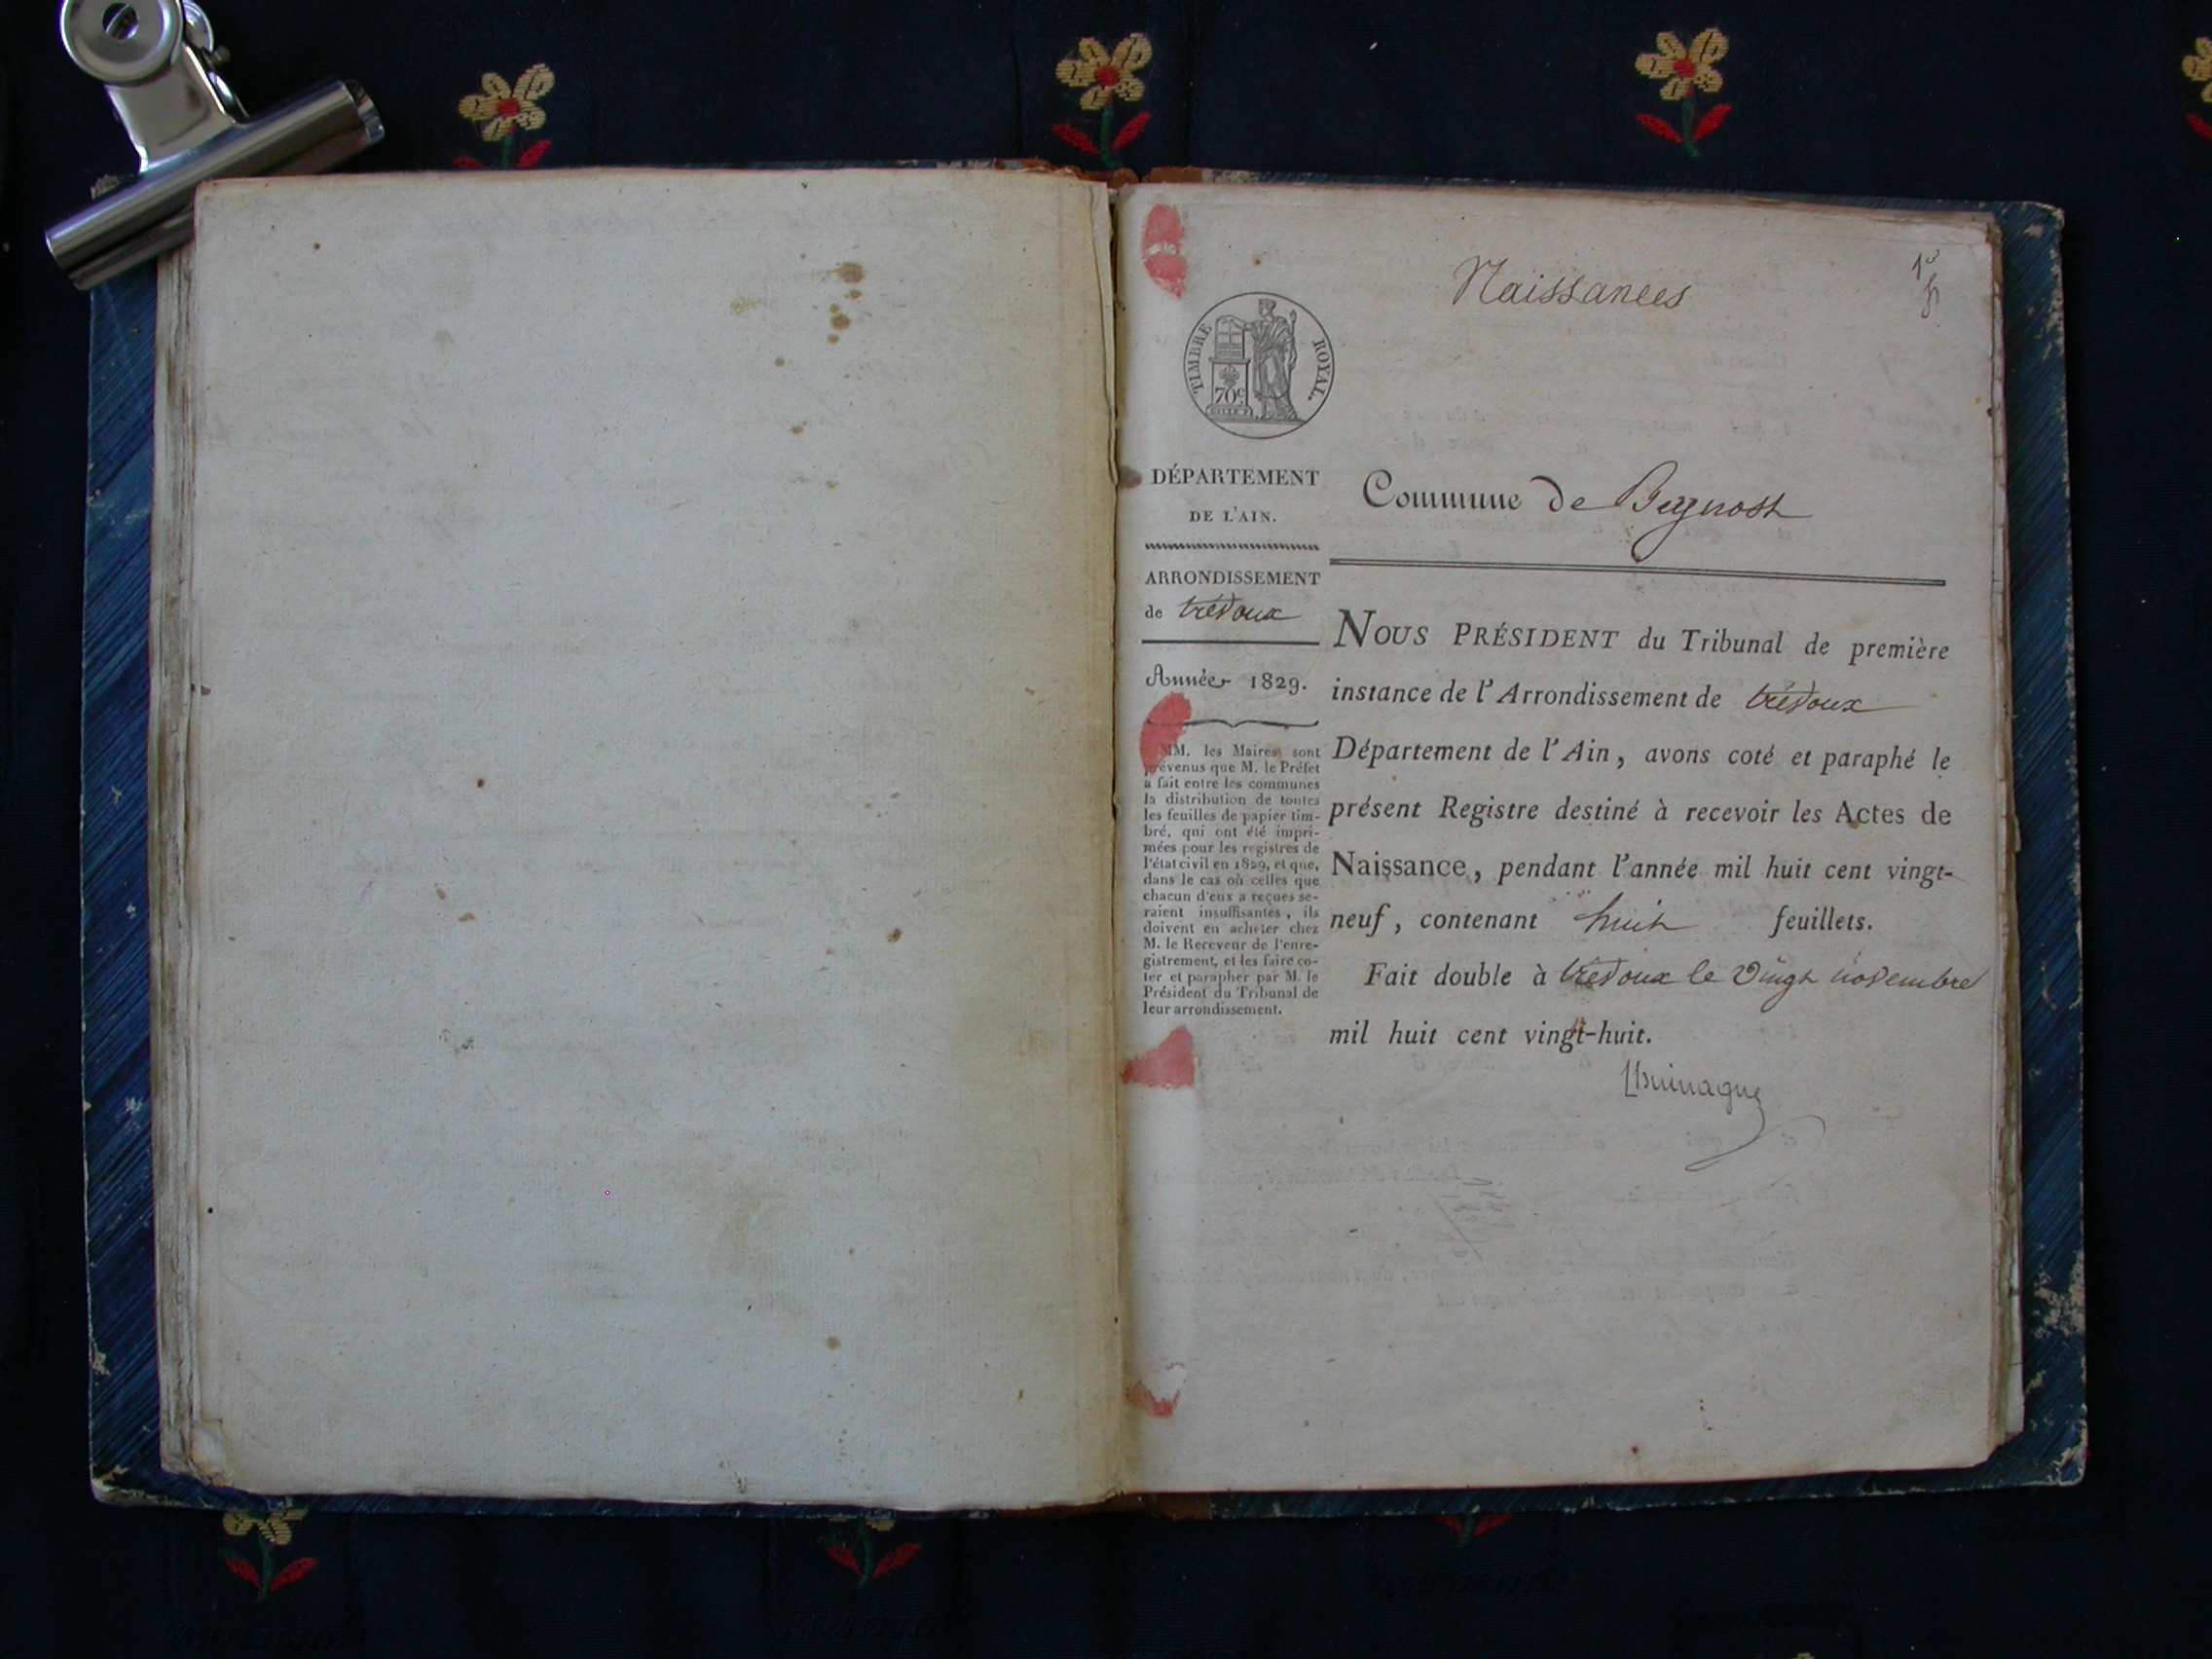 Naissances
1er
TIMBRE ROYAL.
70c
DÉPARTEMENT
DE L'AIN.
ARRONDISSEMENT
de trévoux
Année 1829.
MM. les Maires sont
prévenus que M. le Préfet
a fait entre les communes
la distribution de toutes
les feuilles de papier tim-
bré, qui ont été impri-
mées pour les registres de
l'état civil en 1829, et que,
dans le cas où celles que
chacun d'eux a reçues se-
raient insuffisantes, ils
doivent en acheter chez
M. le Receveur de l'enre-
gistrement, et les faire co-
ter et parapher par M. le
Président du Tribunal de
leur arrondissement.
Commune de Beynost
NOUS PRÉSIDENT du Tribunal de première
instance de l'Arrondissement de trévoux
Département de l'Ain, avons coté et paraphé le
présent Registre destiné à recevoir les Actes de
Naissance, pendant l'année mil huit cent vingt-
neuf, contenant huit feuillets.
Fait double à trévoux le vingt novembre
mil huit cent vingt-huit.